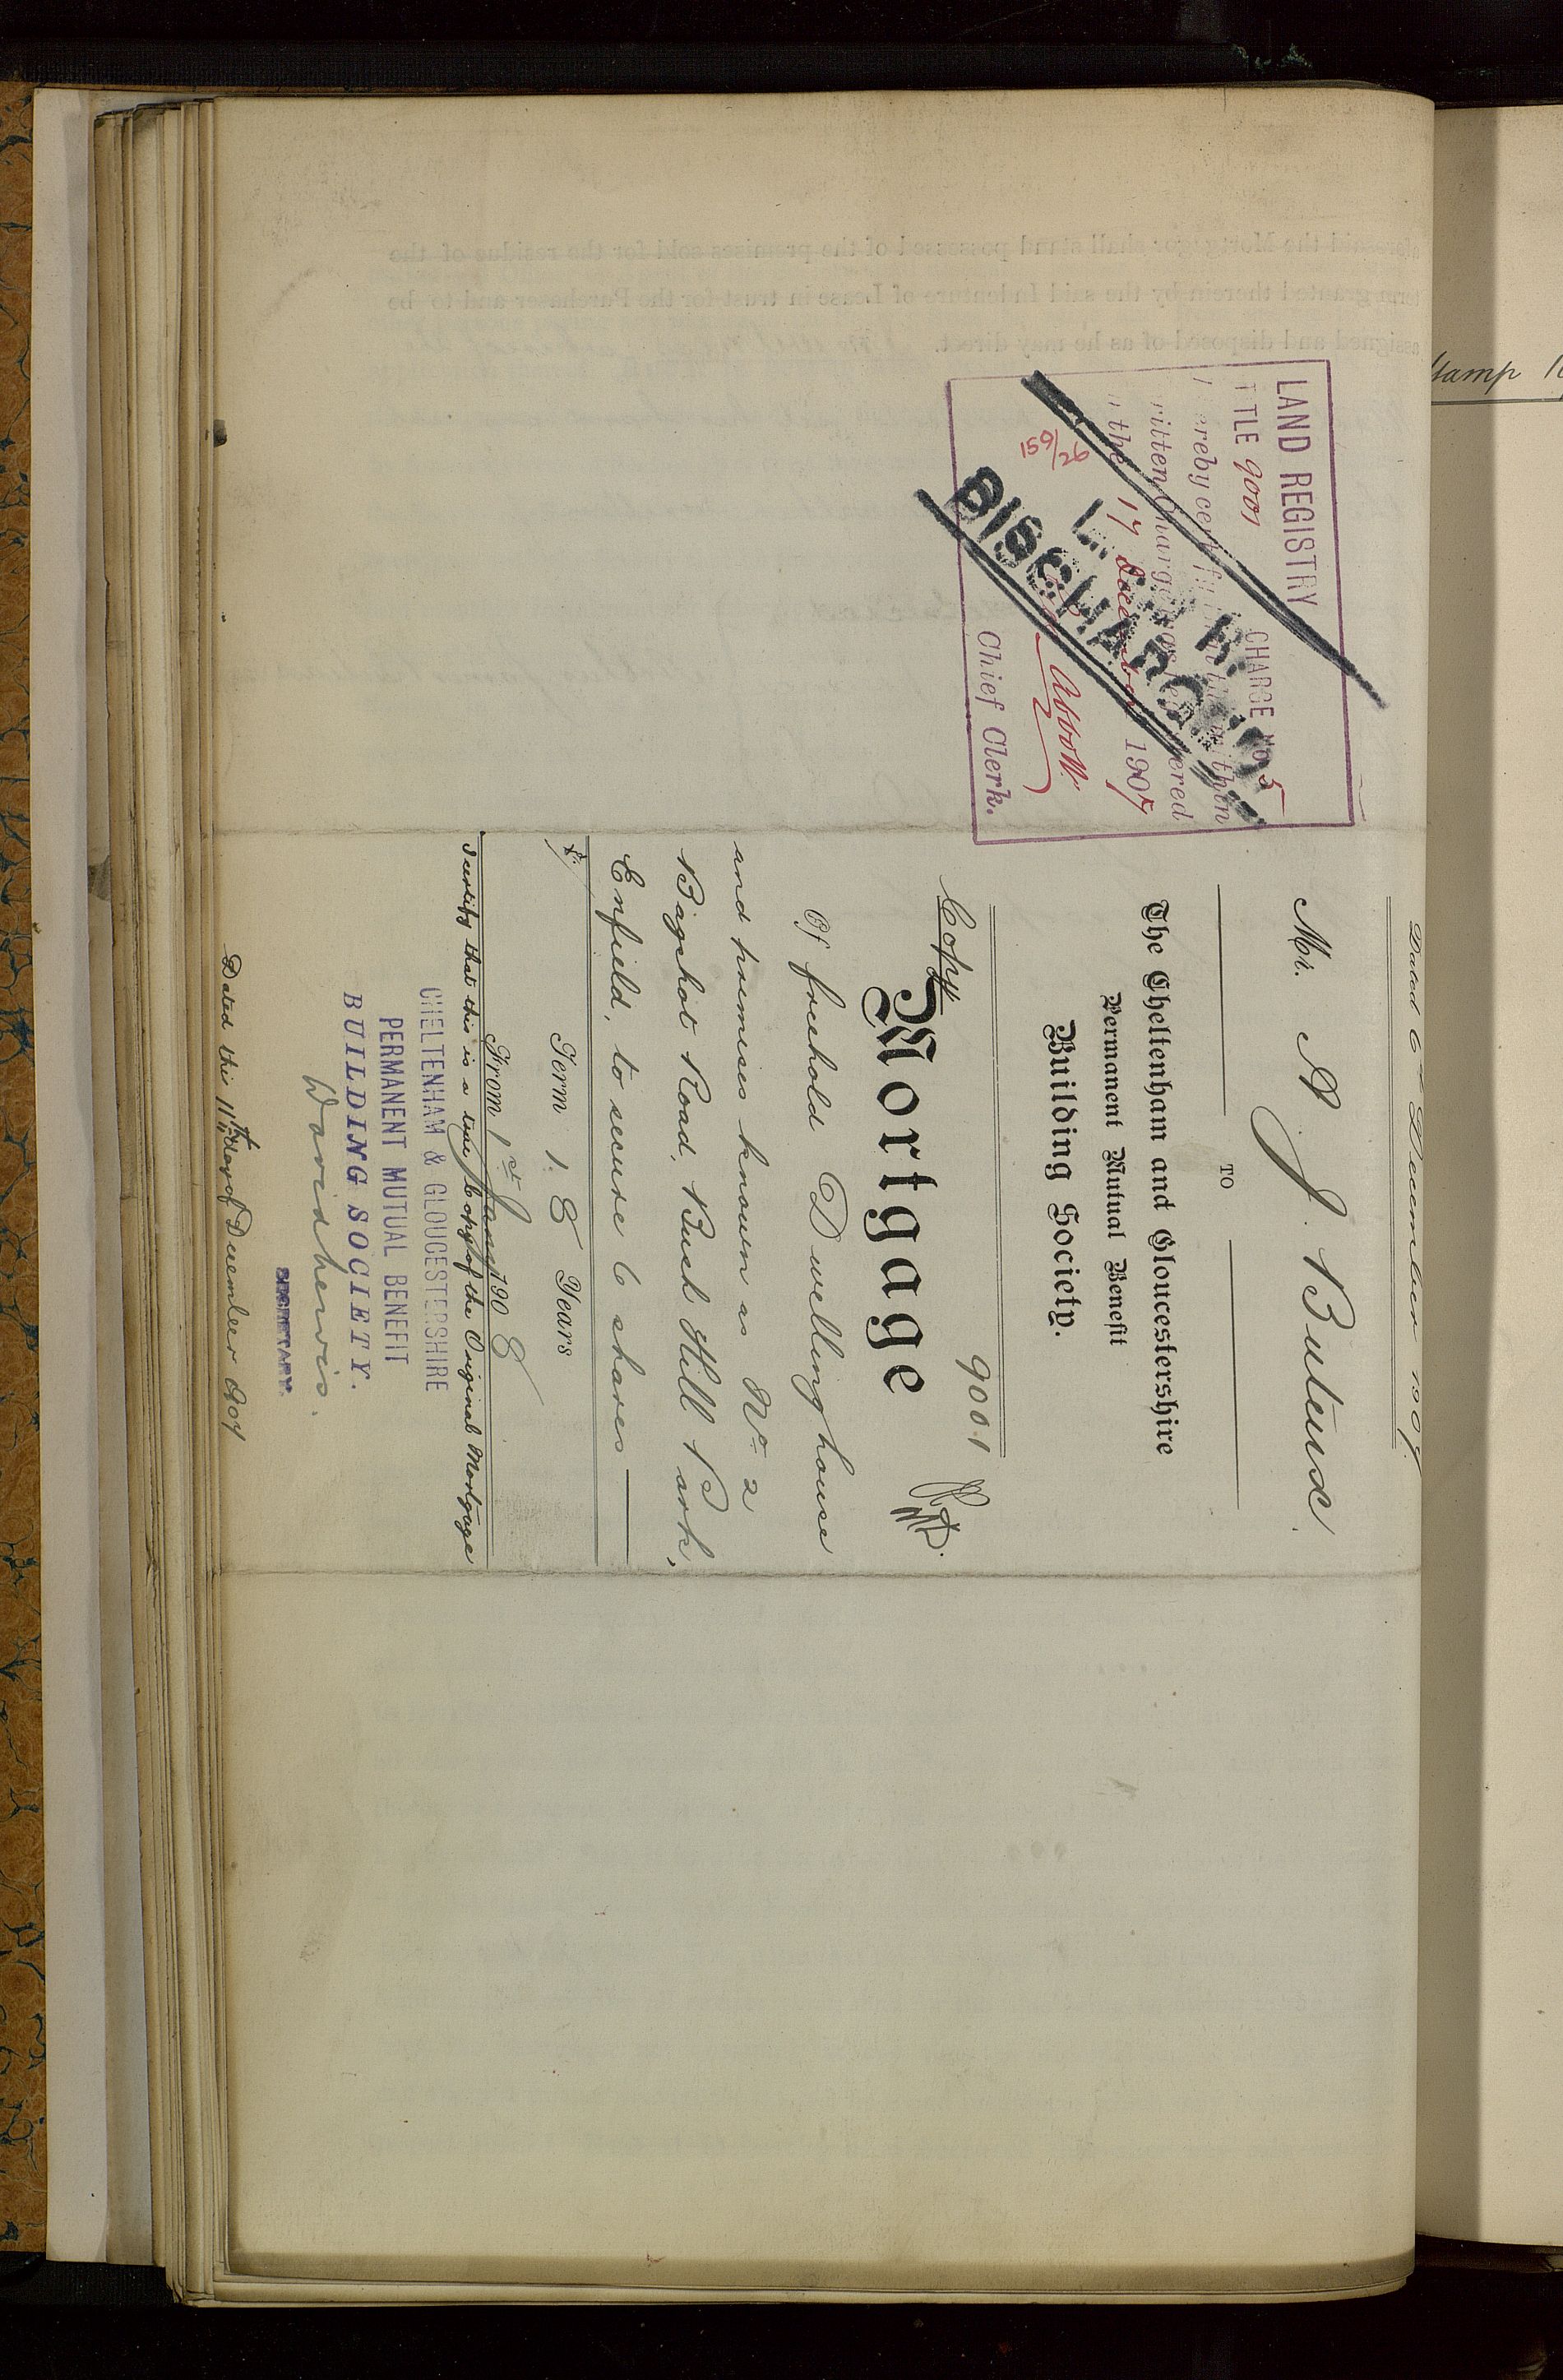 Dated 6th December 1907.
Mr. A J. Buteux.
TO
The Cheltenham and Gloucestershire
Permanent Mutual Benefit
Building Society.
9001
Copy
Mortgage
Of freehold Dwellinghouse
and premises known as No 2
Bagshot Road, Bush Hill Park,
Enfield, to secure 6 shares
£
Term 18 Years
From 1st Jany 1908
I certify that this is a true Copy of the Original Mortgage
CHELTENHAM & GLOUCESTERSHIRE
PERMANENT MUTUAL BENEFIT
BUILDING SOCIETY.
David Lewis.
SECRETARY.
Dated this 11th day of December 1907
LAND REGISTRY
TITLE 9001 CHARGE No 5
hereby certify that the within
written Charge was registered
the 17 December 1907
Abbott
Chief Clerk.
159/26
L. C. R.
DISCHARGED
aforesaid the Mortgagor shall stand possessed of the premises sold for the residue of the
term granted therein by the said Indenture of Lease in trust for the Purchaser and to be
assigned and disposed of as he may direct.
Stamp